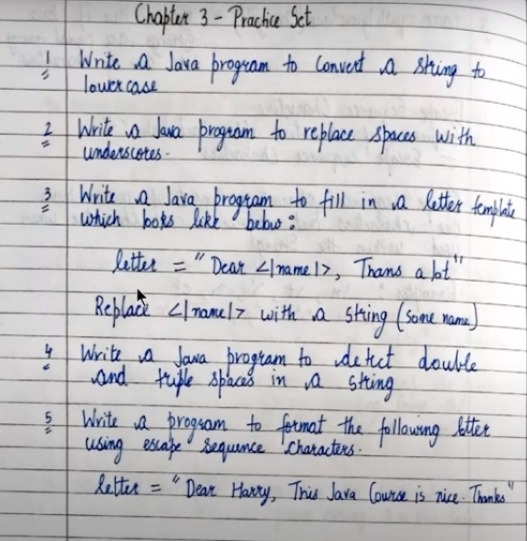 Chapter 3 - Practice Set
1 Write a Java program to Convert a string to
lowercase
2 Write a Java program to replace spaces with
underscores.
3 Write a Java program to fill in a letter template
which looks like below :
letter = "Dear <|name|>, Thanks a lot"
Replace <|name|> with a string (some name)
4 Write a Java program to detect double
and triple spaces in a string
5 Write a program to format the following letter
using escape sequence characters.
letter = "Dear Harry, This Java Course is nice. Thanks"